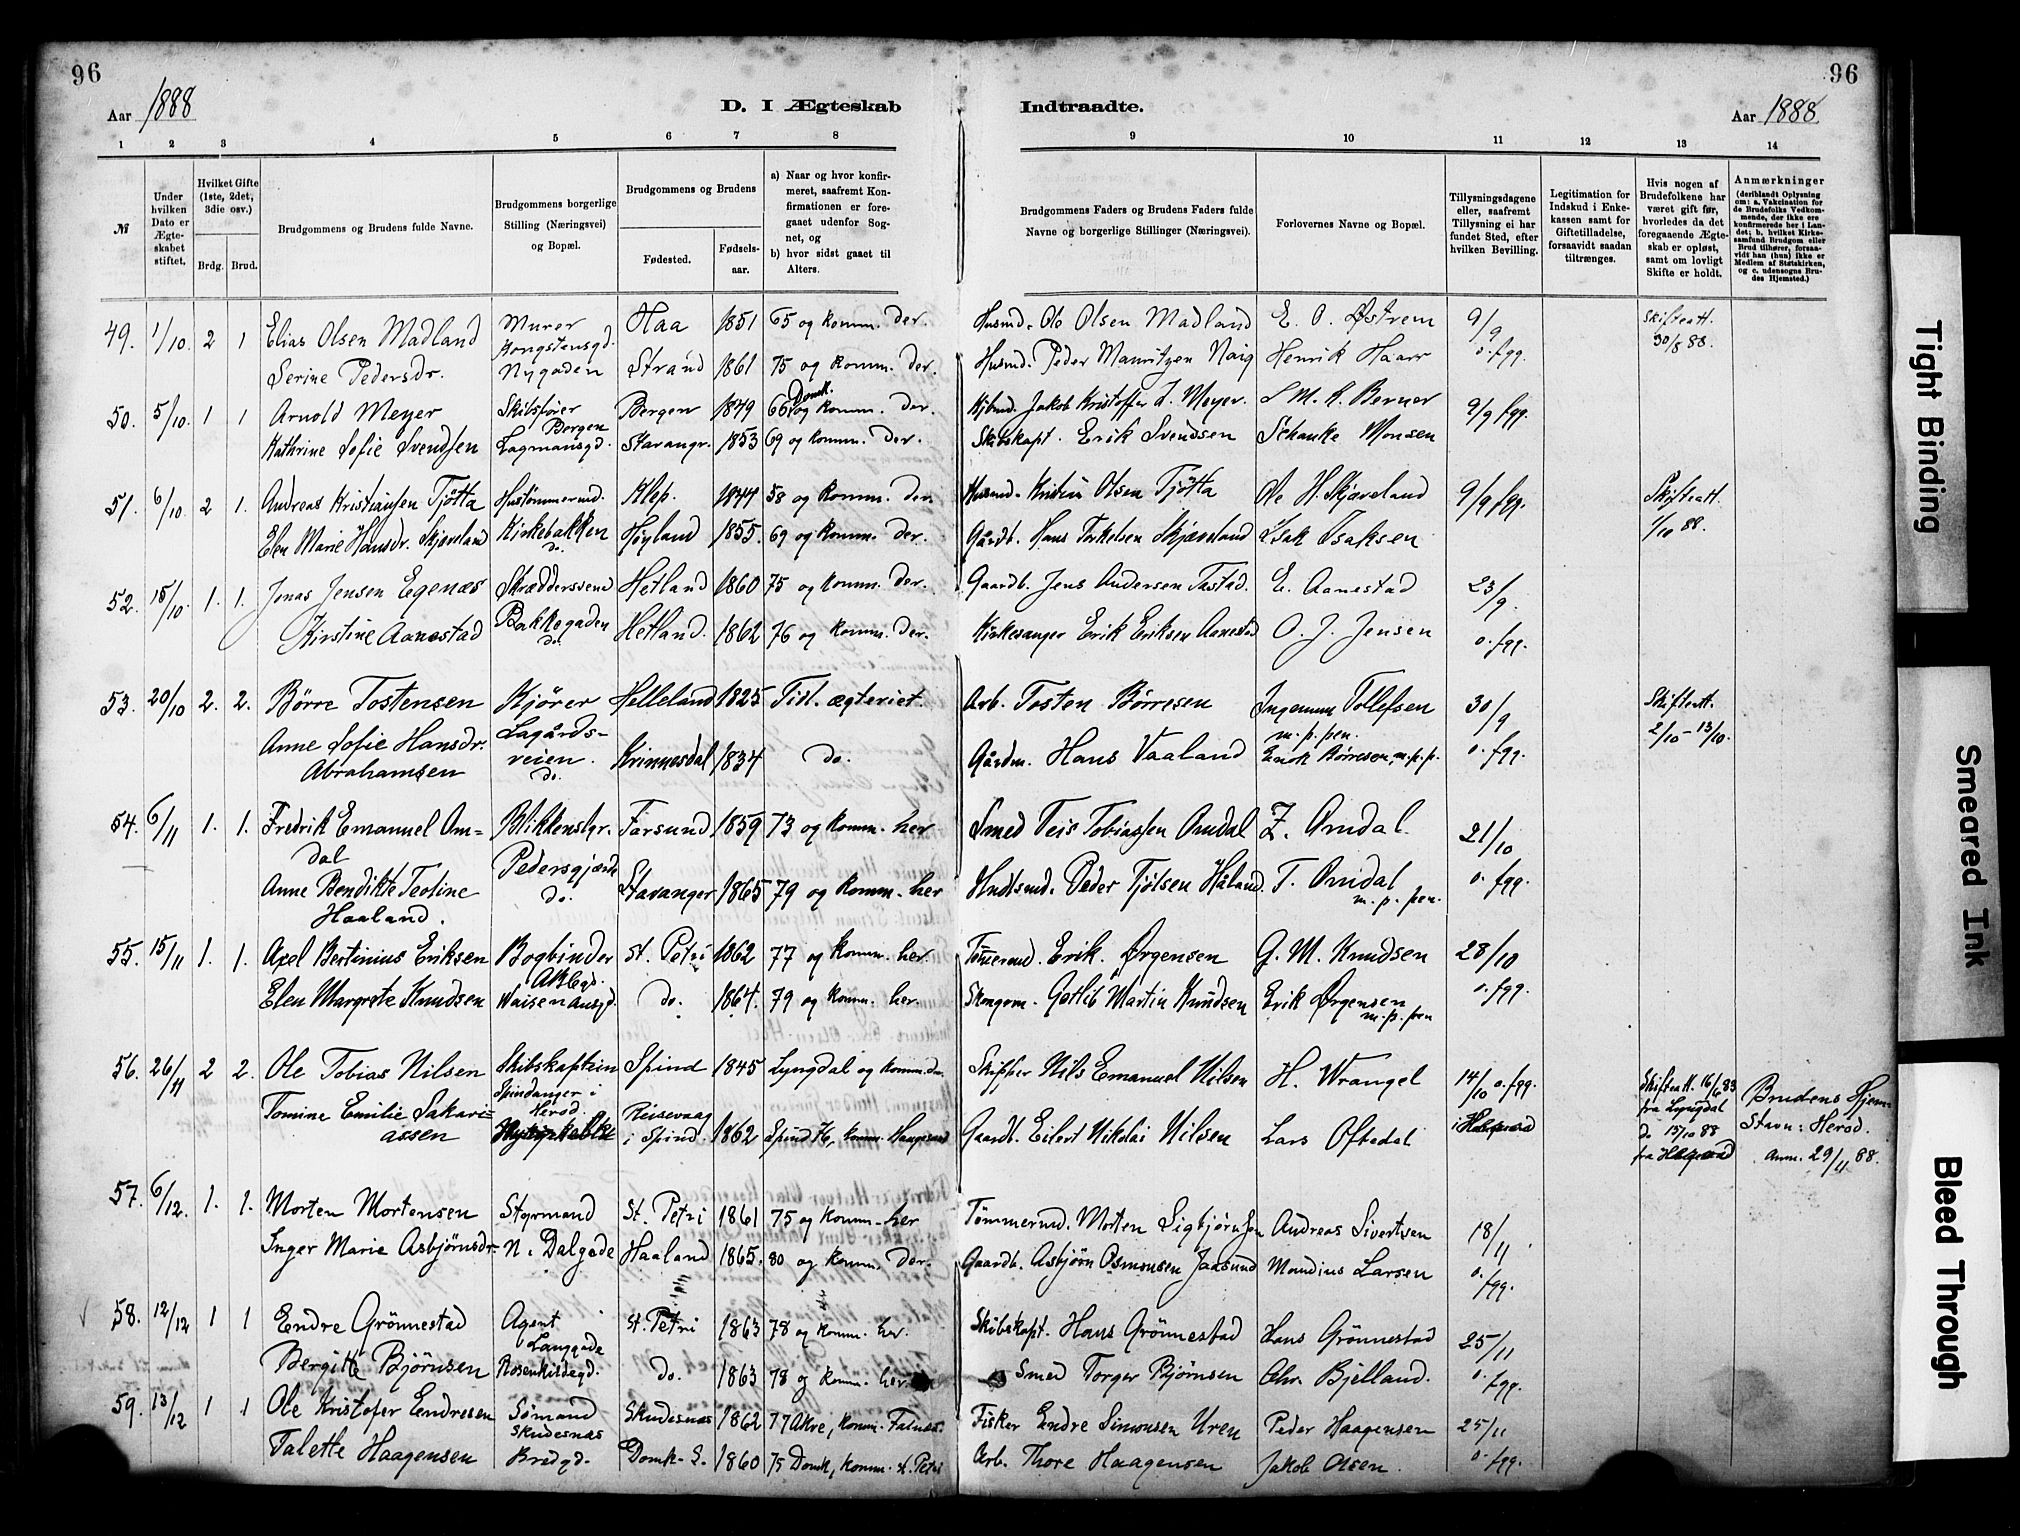 96
96
Aar 1888
D. I Ægteskab Indtraadte.
Aar 1888
1 2 3 4 5 6 7 8 9 10 11 12 13 14
№
Under hvilken Dato er Ægteskabet stiftet.
Hvilket Gifte (1ste, 2det, 3die osv.)
Brdg. Brud.
Brudgommens og Brudens fulde Navne.
Brudgommens borgerlige Stilling (Næringsvei) og Bopæl.
Brudgommens og Brudens
Fødested.
Fødselsaar.
a) Naar og hvor konfirmeret, saafremt Konfirmationen er foregaaet udenfor Sognet, og
b) hvor sidst gaaet til Alters.
Brudgommens Faders og Brudens Faders fulde Navne og borgerlige Stillinger (Næringsvei).
Forlovernes Navne og Bopæl.
Tillysningsdagene eller, saafremt Tillysning ei har fundet Sted, efter hvilken Bevilling.
Legitimation for Indskud i Enkekassen samt for Giftetilladelse, forsaavidt saadan tiltrænges.
Hvis nogen af Brudefolkene har været gift før, hvorledes da det foregaaende Ægteskab er opløst, samt om lovligt Skifte er holdt.
Anmærkninger (deriblandt Oplysning om: a. Vakcination for de Brudefolks Vedkommende, der ikke ere konfirmerede her i Landet; b. hvilket Kirkesamfund Brudgom eller Brud tilhører, forsaavidt han (hun) ikke er Medlem af Statskirken, og c. udensogns Brudes Hjemsted.)
49. 1/10. 2 1 Elias Olsen Madland Murer Haa 1851 65 og komm. der. Husmd. Ole Olsen Madland E. O. Østrem 9/9 Skifteatt. 30/8 88.
Kongstensgd.
Serine Pedersdr. Nygaden Strand 1861 75 og komm. der. Husmd. Peder Mauritzen Henrik Haarr o. fgg.
50. 5/10. 1 1 Arnold Meyer Skibsfører Bergen 1849 66 Domk. og komm. der. Kjbmd. Jakob Kristoffer D. Meyer. Berner 9/9 fgg.
Bergen
Kathrine Sofie Svendsen Lagmansgd. Stavangr. 1853 69 og komm. der. Skibskapt. Erik Svendsen Schanke Monsen
51. 6/10. 2 1. Andreas Kristiansen Tjøtta Hustømmermd. Klep. 1844 58 og komm. der. Husmd. Kristian Olsen Tjøtta Ole H. Skjæveland 9/9 fgg. Skifteatt. 1/10 88.
Elen Marie Hansdr. Skjæveland Kirkebakken do. Høyland 1855. 69 og komm. der. Gårdb. Hans Torkelsen Skjæveland Isak Isaksen
52. 15/10. 1. 1. Jonas Jensen Egenæs Skræddersvend Hetland 1860 75 og komm. der. Gaardb. Jens Andersen Tastad. E. Aanestad 23/9.
Kirstine Aanestad Bakkegaden do. Hetland. 1862 76 og komm. der. Kirkesanger Erik Eriksen Aanestad O. J. Jensen o. fgg.
53. 20/10 2. 2. Børre Tostensen Kjører Helleland 1825 Tidl. ægteviet. Arb. Tosten Børresen Ingemun Tollefsen m. p. pen. 30/9 Skifteatt. 2/10 - 13/10.
Anne Sofie Hansdr. Abrahamsen Lagårdsveien. do. Kvinnesdal 1834 do. Gårdm. Hans Vaaland Enok Børresen, m. p. p. o. fgg.
54. 6/11 1. 1. Fredrik Emanuel Omdal Blikkenslgr. Farsund 1859 73 og komm. her Smed Teis Tobiassen Omdal Z. Omdal. 21/10
Anne Bendikte Teoline Haaland. Pedersgjærde do. Stavanger 1865 79 og komm. her Hndlsmd. Peder Tjølsen Håland. T. Omdal m. p. pen. o. fgg.
55. 15/11 1. 1. Axel Bertinius Eriksen Bogbinder St. Petri 1862 77 og komm. her. Tømmermd. Erik Ørgensen G. M. Knudsen 28/10
Elen Margrete Knudsen Waisenhusgd. do. 1864. 79 og komm. her. Skomgrm. Gotlib Martin Knudsen Erik Ørgensen m. p. pen o. fgg.
56. 26/11 2 2. Ole Tobias Nilsen Skibskaptein Spind 1845 Lyngdal og komm. der. Skipper Nils Emanuel Nilsen H. Wrangel 14/10 o. fgg. Skifteatt. 16/6 83 fra Lyngdal do 15/10 88 fra
Spindanger i Herod.
Tomine Emilie Sakariassen i Spind. 1862 Spind 76, komm. Gaardb. Eilert Nikolai Nilsen Lars Oftedal
Brudens Hjem-
Stavn: Herod.
Anm. 29/11 88.
57. 6/12. 1. 1. Morten Mortensen Styrmand St. Petri 1861 75 og komm. her Tømmermd. Morten Sigbjørnsen Andreas Sivertsen 18/11
Inger Marie Asbjørnsdr. N. Dalgade Haaland 1865. 80 og komm. der. Gaardb. Asbjørn Osmonsen Jaasund Mondius Larsen o. fgg.
58. 12/12 1 1 Endre Grønnestad Agent St. Petri 1863 78 og komm. her. Skibskapt. Hans Grønnestad Hans Grønnestad 25/11
Langgade
Bergitte Bjørnsen Rosenkildegd. do. 1863 78 og komm. her. Smed Torger Bjørnsen Chr. Bjelland. o. fgg.
59. 13/12 1 1 Ole Kristofer Endresen Sømand Skudesnæs 1862 77 Akre, komm. Falnæs. Fisker Endre Simonsen Uren Peder Haagensen 25/11
Skudesnæs
Talette Haagensen Bredgd. Domk. S. 1860 75 Domk, komm. St. Petri Arb. Thore Haagensen Jakob Olsen. o. fgg.
Tight Binding
Smeared Ink
Bleed Through